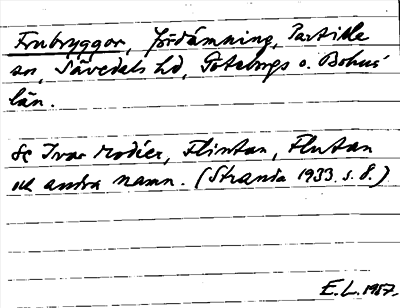 Frubryggor, fördämning, Partille
sn, Sävedals hd, Göteborgs o. Bohus
län.
Se Ivar Modéer, Flintan, Flutan
och andra namn. (Stranda 1933. s. 8.)
E.L. 1957.